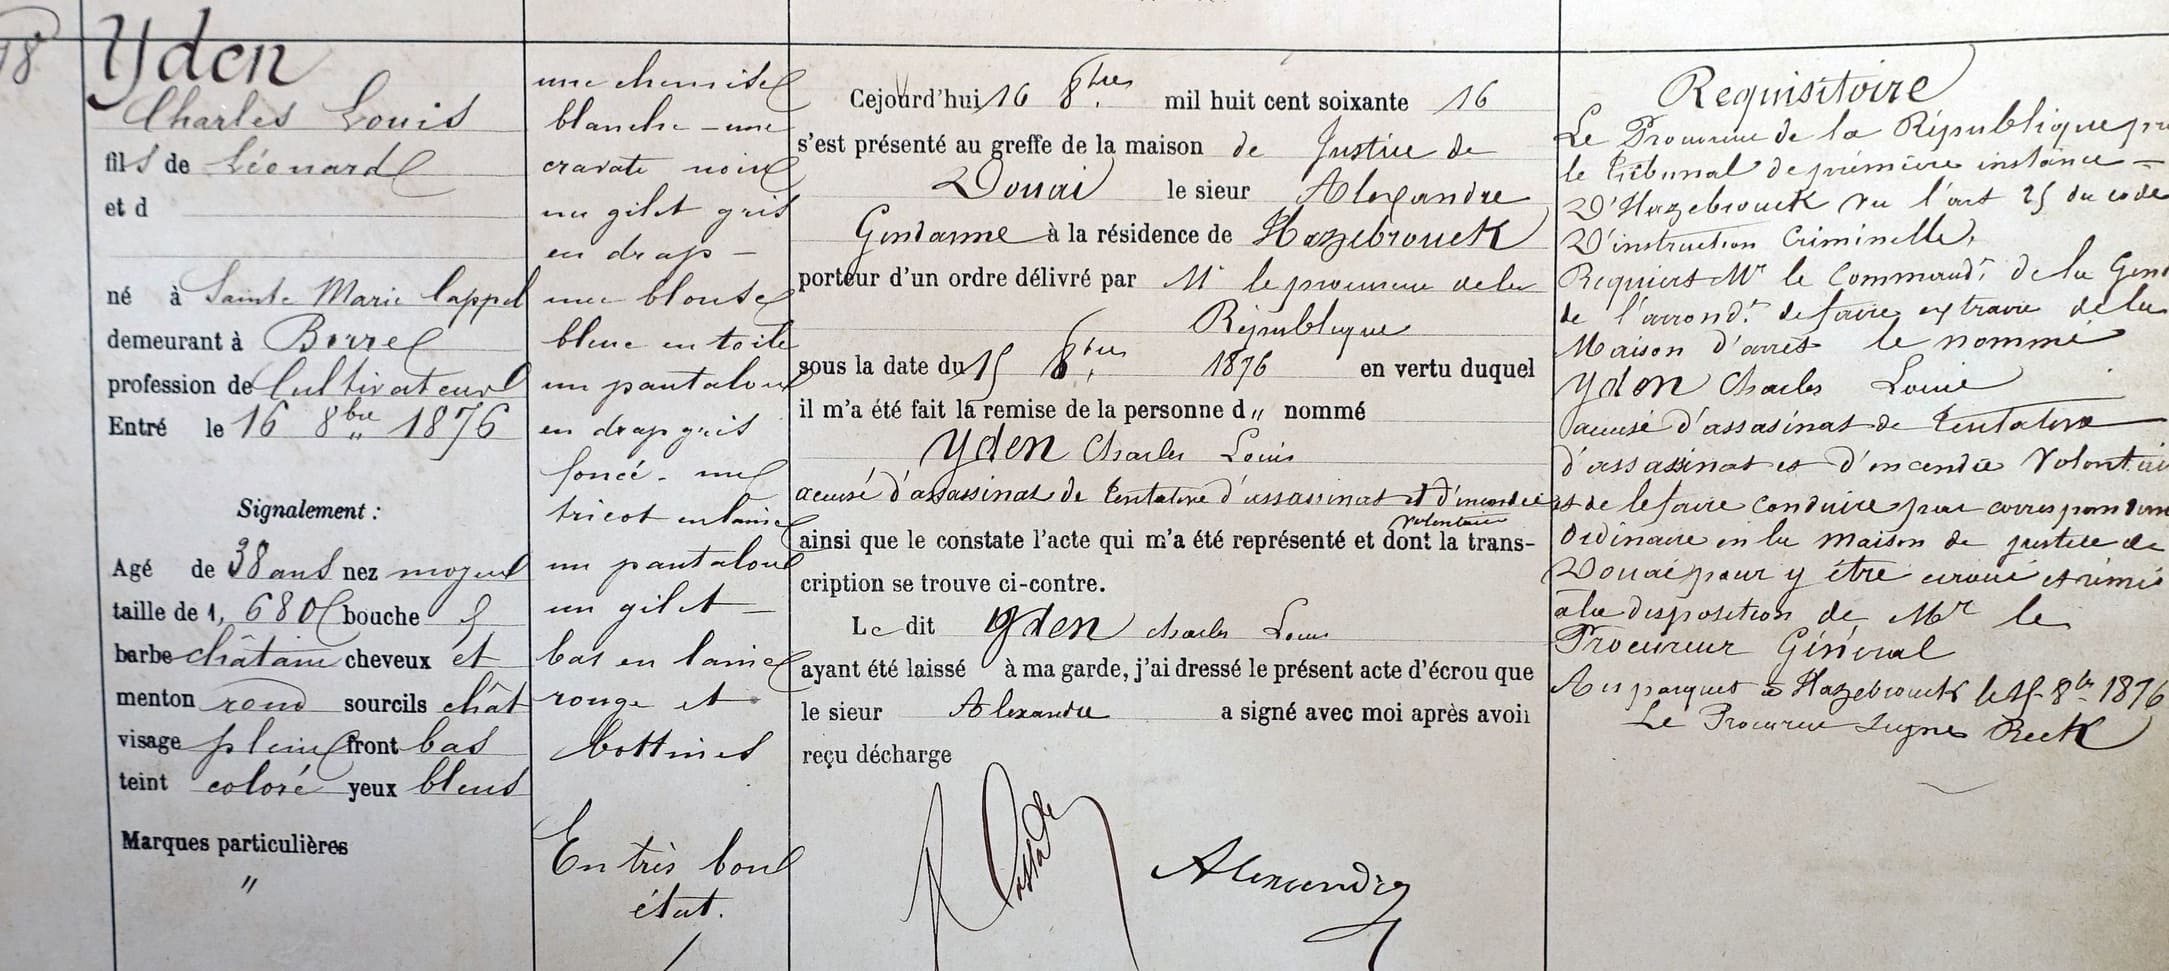 18
Yden
Charles Louis
fils de Léonard
et d
né à Sainte Marie Cappel
demeurant à Borre
profession de Cultivateur
Entré le 16 8bre 1876
Signalement :
Agé de 38 ans nez moyen
taille de 1, 680 bouche
barbe châtain cheveux et
menton rond sourcils chât
visage plein front bas
teint coloré yeux bleus
Marques particulières
"
une chemise
blanche - une
cravate noire
un gilet gris
en drap -
une blouse
bleue en toile
un pantalon
en drap gris
foncé - un
tricot en laine
un pantalon
un gilet -
bas en laine
rouge et
bottines
En très bon
état.
Cejourd'hui 16 8bre mil huit cent soixante 16
s'est présenté au greffe de la maison de Justice de
Douai le sieur Alexandre
Gendarme à la résidence de Hazebrouck
porteur d'un ordre délivré par Mr le procureur de la
République
sous la date du 15 8bre 1876 en vertu duquel
il m'a été fait la remise de la personne d" nommé
Yden Charles Louis
accusé d'assassinat de tentative d'assassinat et d'incendie
volontaire
ainsi que le constate l'acte qui m'a été représenté et dont la trans-
cription se trouve ci-contre.
Le dit Yden Charles Louis
ayant été laissé à ma garde, j'ai dressé le présent acte d'écrou que
le sieur Alexandre a signé avec moi après avoir
reçu décharge
Alexandre
Requisitoire
Le Procureur de la République pr
le Tribunal de première instance -
D'Hazebrouck Vu l'art 25 du code
D'instruction Criminelle,
Requiers Mr le Command.t de la Gend
de l'arrond.t de faire extraire de la
Maison d'arrêt le nommé
Yden Charles Louis
accusé d'assasinat de tentative
d'assassinat et d'incendie Volontai
et de le faire conduire par correspondan
Ordinaire en la maison de justice de
Douai pour y être écroué et remis
à la disposition de Mr le
Procureur Général
Au parquet à Hazebrouck le 15 8bre 1876
Le Procureur signé Reck